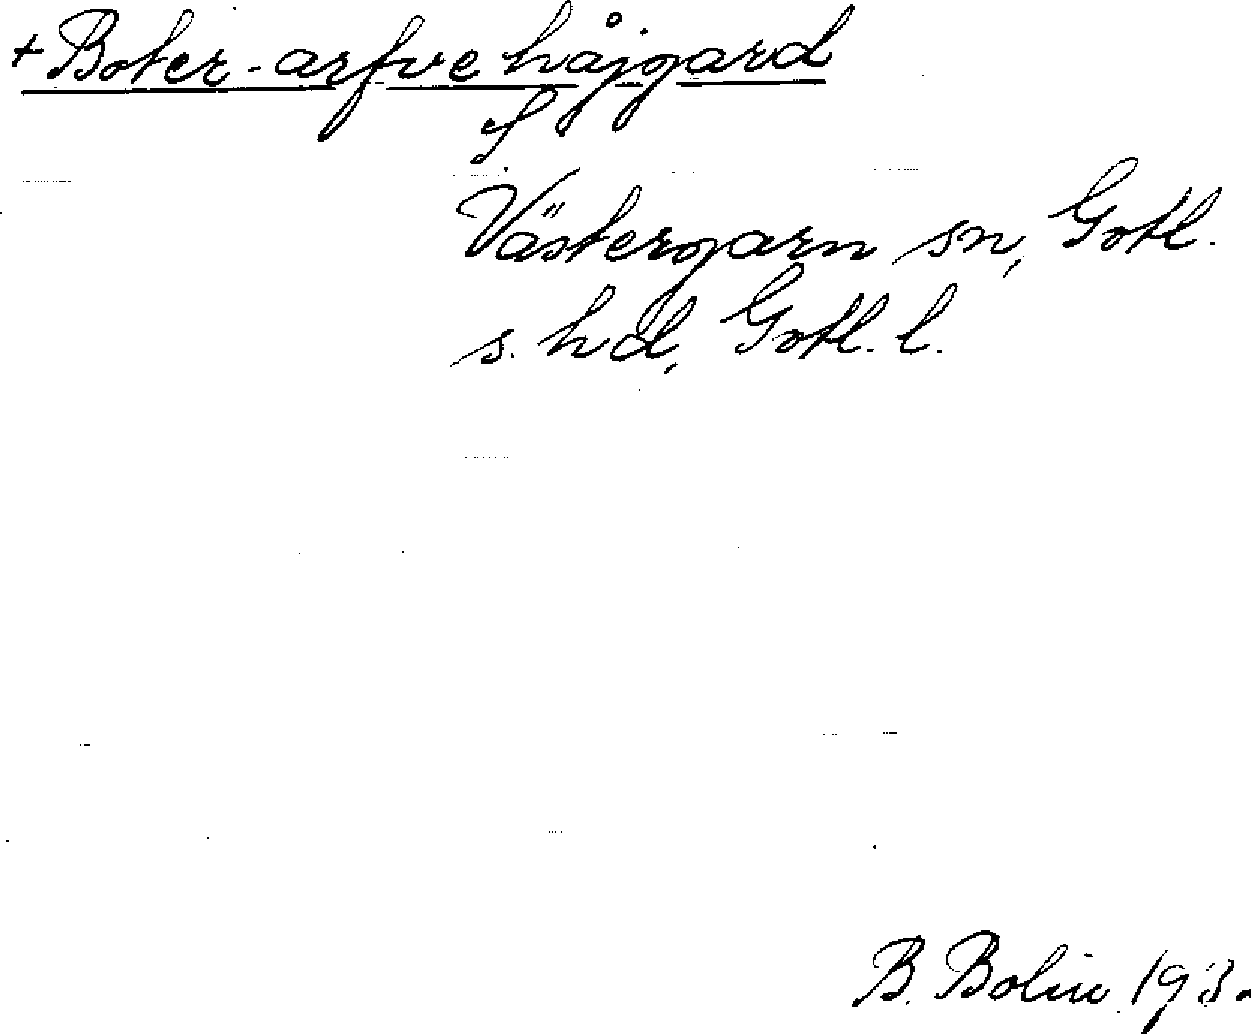 + Boter-arfve håjgard
f
Västergarn sn, Gotl.
s. hd, Gotl. l.
B. Bolin